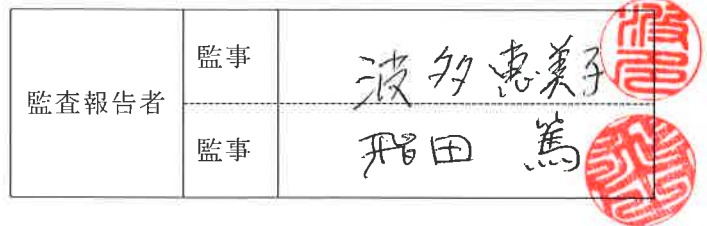 監査報告者
監事
波多恵美子
監事
飛田 篤